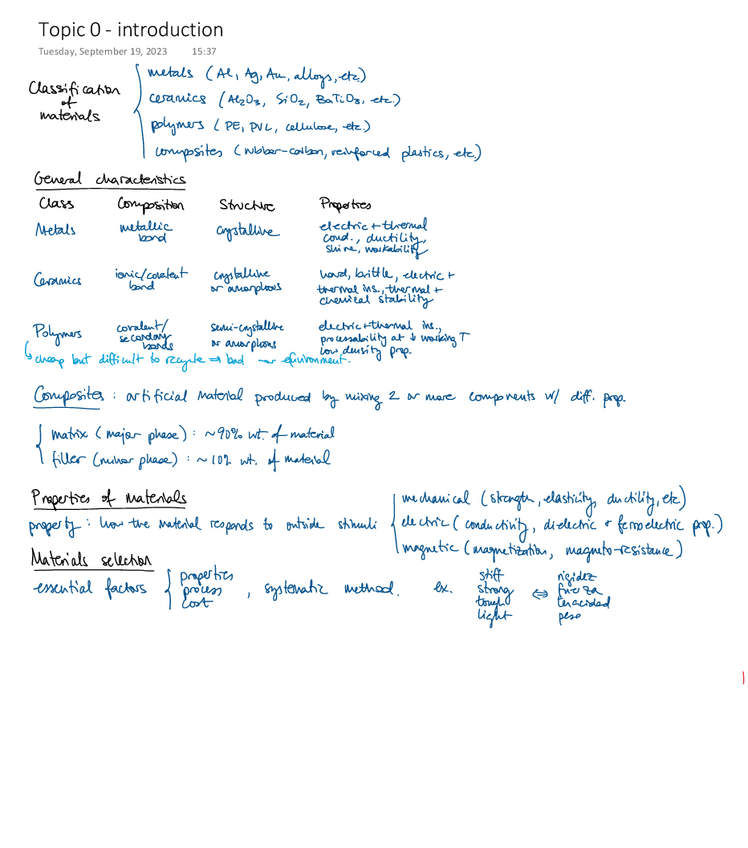 Topic 0 - introduction
Tuesday, September 19, 2023 15:37
Classification of materials
metals (Al, Ag, Au, alloys, etc.)
ceramics (Al₂O₃, SiO₂, BaTiO₃, etc.)
polymers (PE, PVC, cellulose, etc.)
composites (rubber-carbon, reinforced plastics, etc)
General characteristics
Class Composition Structure Properties
Metals metallic bond crystalline electric + thermal cond., ductility, shine, workability
Ceramics ionic/covalent bond crystalline or amorphous hard, brittle, electric + thermal ins., thermal + chemical stability
Polymers covalent/secondary bonds semi-crystalline or amorphous electric + thermal ins., processability at ↓ working T low density prop.
↳ cheap but difficult to recycle ⇒ bad environment.
Composites : artificial material produced by mixing 2 or more components w/ diff. prop.
matrix (major phase) : ~90% wt. of material
filler (minor phase) : ~10% wt. of material
Properties of materials
property : how the material responds to outside stimuli
mechanical (strength, elasticity, ductility, etc)
electric (conductivity, dielectric + ferroelectric prop.)
magnetic (magnetization, magneto-resistance)
Materials selection
essential factors { properties process cost , systematic method. ex. stiff strong tough light ⇔ rigidez fuerza tenacidad peso